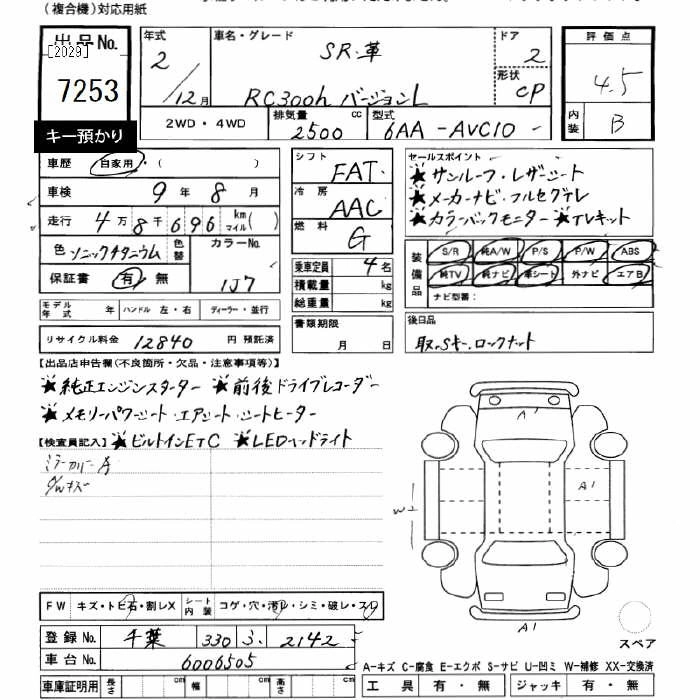 (複合機)対応用紙
出品No.
[2029]
7253
キー預かり
年式 2 / 12月
車名・グレード SR・革
RC300h バージョンL
ドア 2
形状 CP
評価点 4.5
内装 B
2WD・4WD
排気量 2500 cc
型式 6AA - AVC10 -
車歴 自家用・( )
車検 9年 8月
走行 4万 8千 696 km マイル( )
色 ソニックチタニウム 色替
カラーNo. 1J7
保証書 有・無
モデル年式 年 ハンドル 左・右 ディーラー・並行
リサイクル料金 12840 円 預託済
シフト FAT
冷房 AAC
燃料 G
乗車定員 4名
積載量 kg
総重量 kg
書類期限 月 日
セールスポイント
★サンルーフ・レザーシート
★メーカーナビ・フルセグTV
★カラーバックモニター ★TVキット
装備品 S/R 純A/W P/S P/W ABS
純TV 純ナビ 革シート 外ナビ エアB
ナビ型番:
後日品
取、Sキー、ロックナット
【出品店申告欄(不良箇所・欠品・注意事項等)】
★純正エンジンスターター ★前後ドライブレコーダー
★メモリーパワーシート・エアシート・シートヒーター
【検査員記入】 ★ビルトインETC ★LEDヘッドライト
ミラーカバーA
A1
A1
W1
A1
スペア
FW キズ・トビ石・割レX シート内装 コゲ・穴・汚レ・シミ・破レ・スレ
登録No. 千葉 330 る 2142
車台No. 6006505
車庫証明用 長さ cm 幅 cm 高さ cm
A-キズ C-腐食 E-エクボ S-サビ U-凹ミ W-補修 XX-交換済
工具 有・無 ジャッキ 有・無